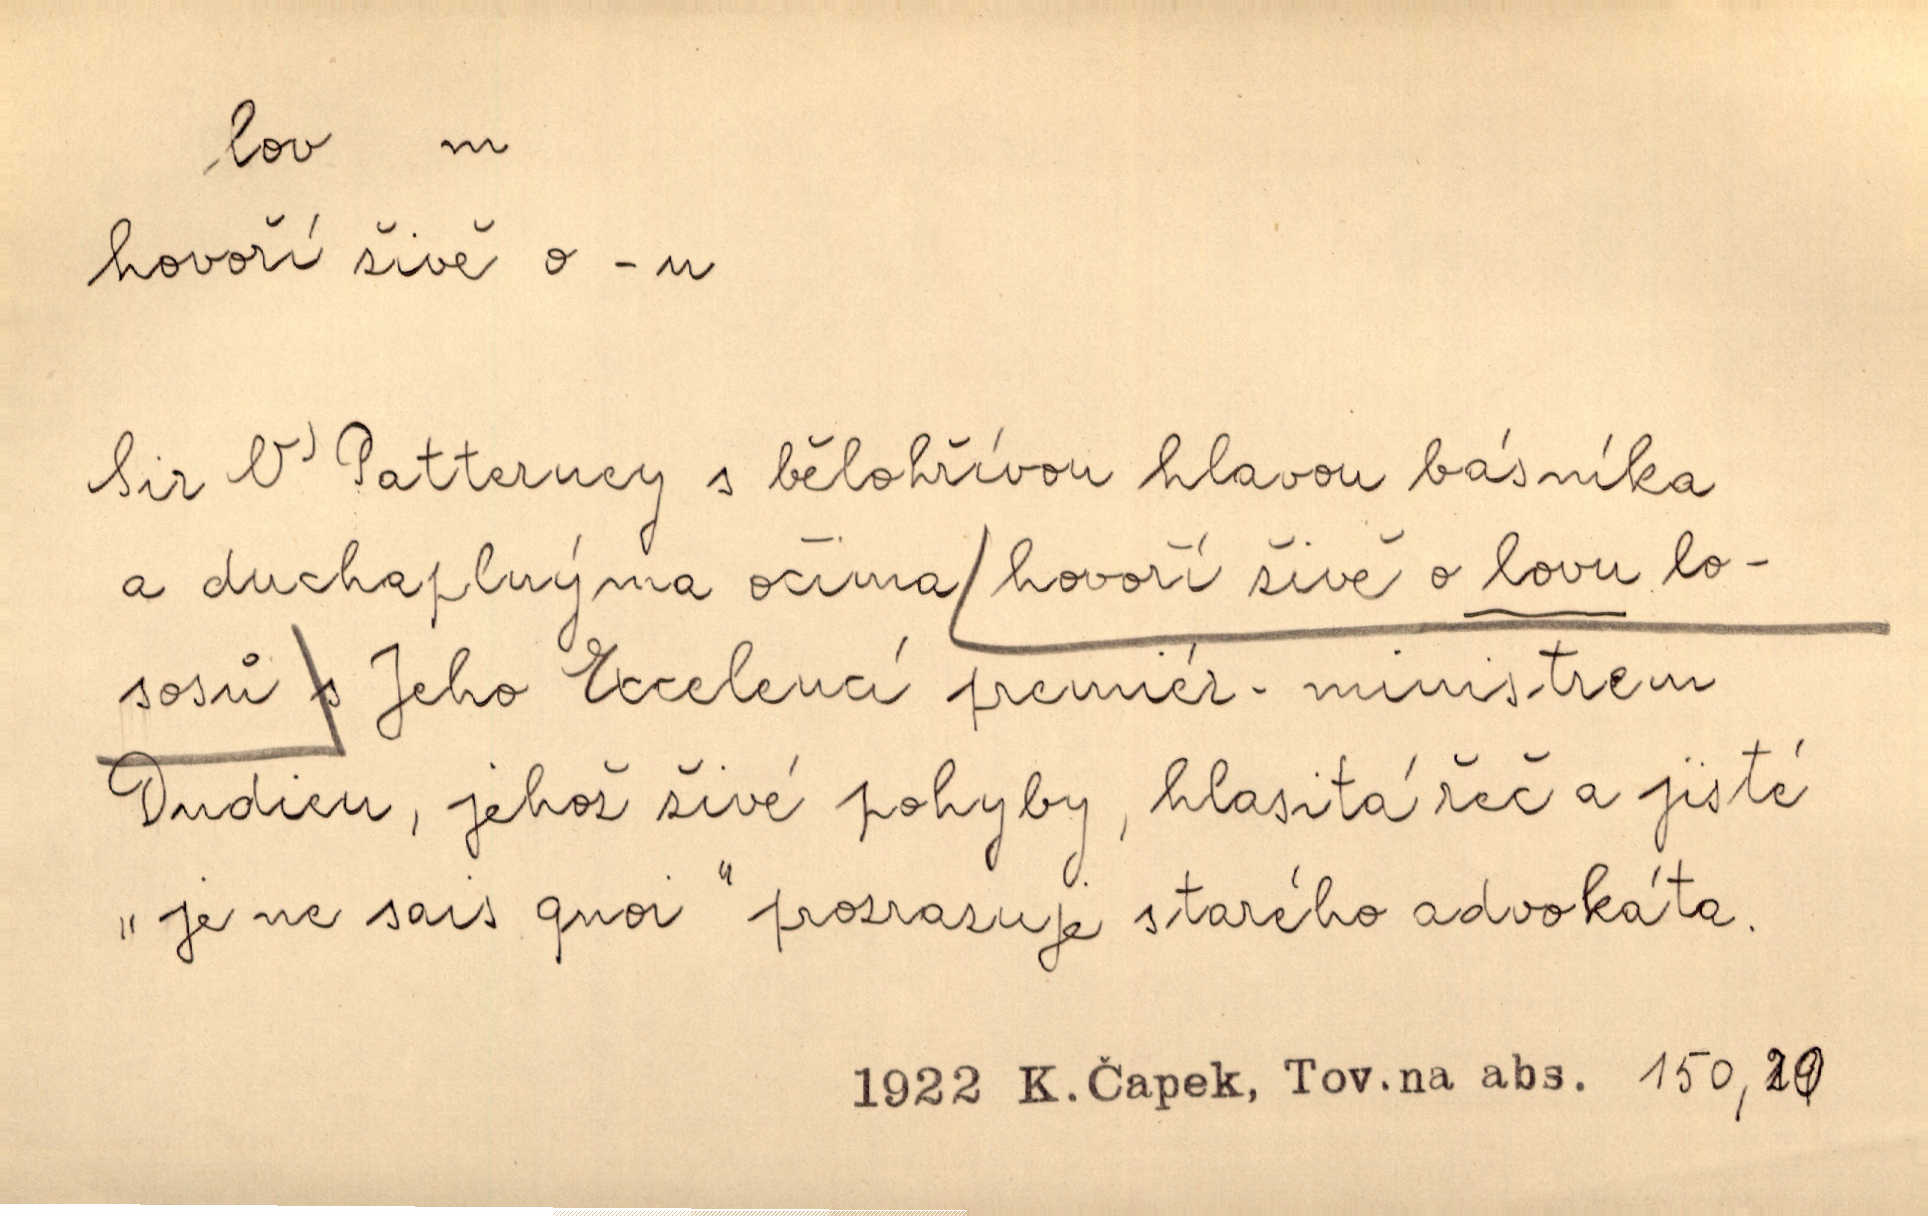 lov m
hovoří živě o -u
Sir O' Patterney s bělohřívou hlavou básníka
a duchaplnýma očima hovoří živě o lovu lo-
sosů s Jeho Excelencí premiér-ministrem
Dudieu, jehož živé pohyby, hlasitá řeč a jisté
„je ne sais quoi“ prozrazuje starého advokáta.
1922 K.Čapek, Tov.na abs. 150,